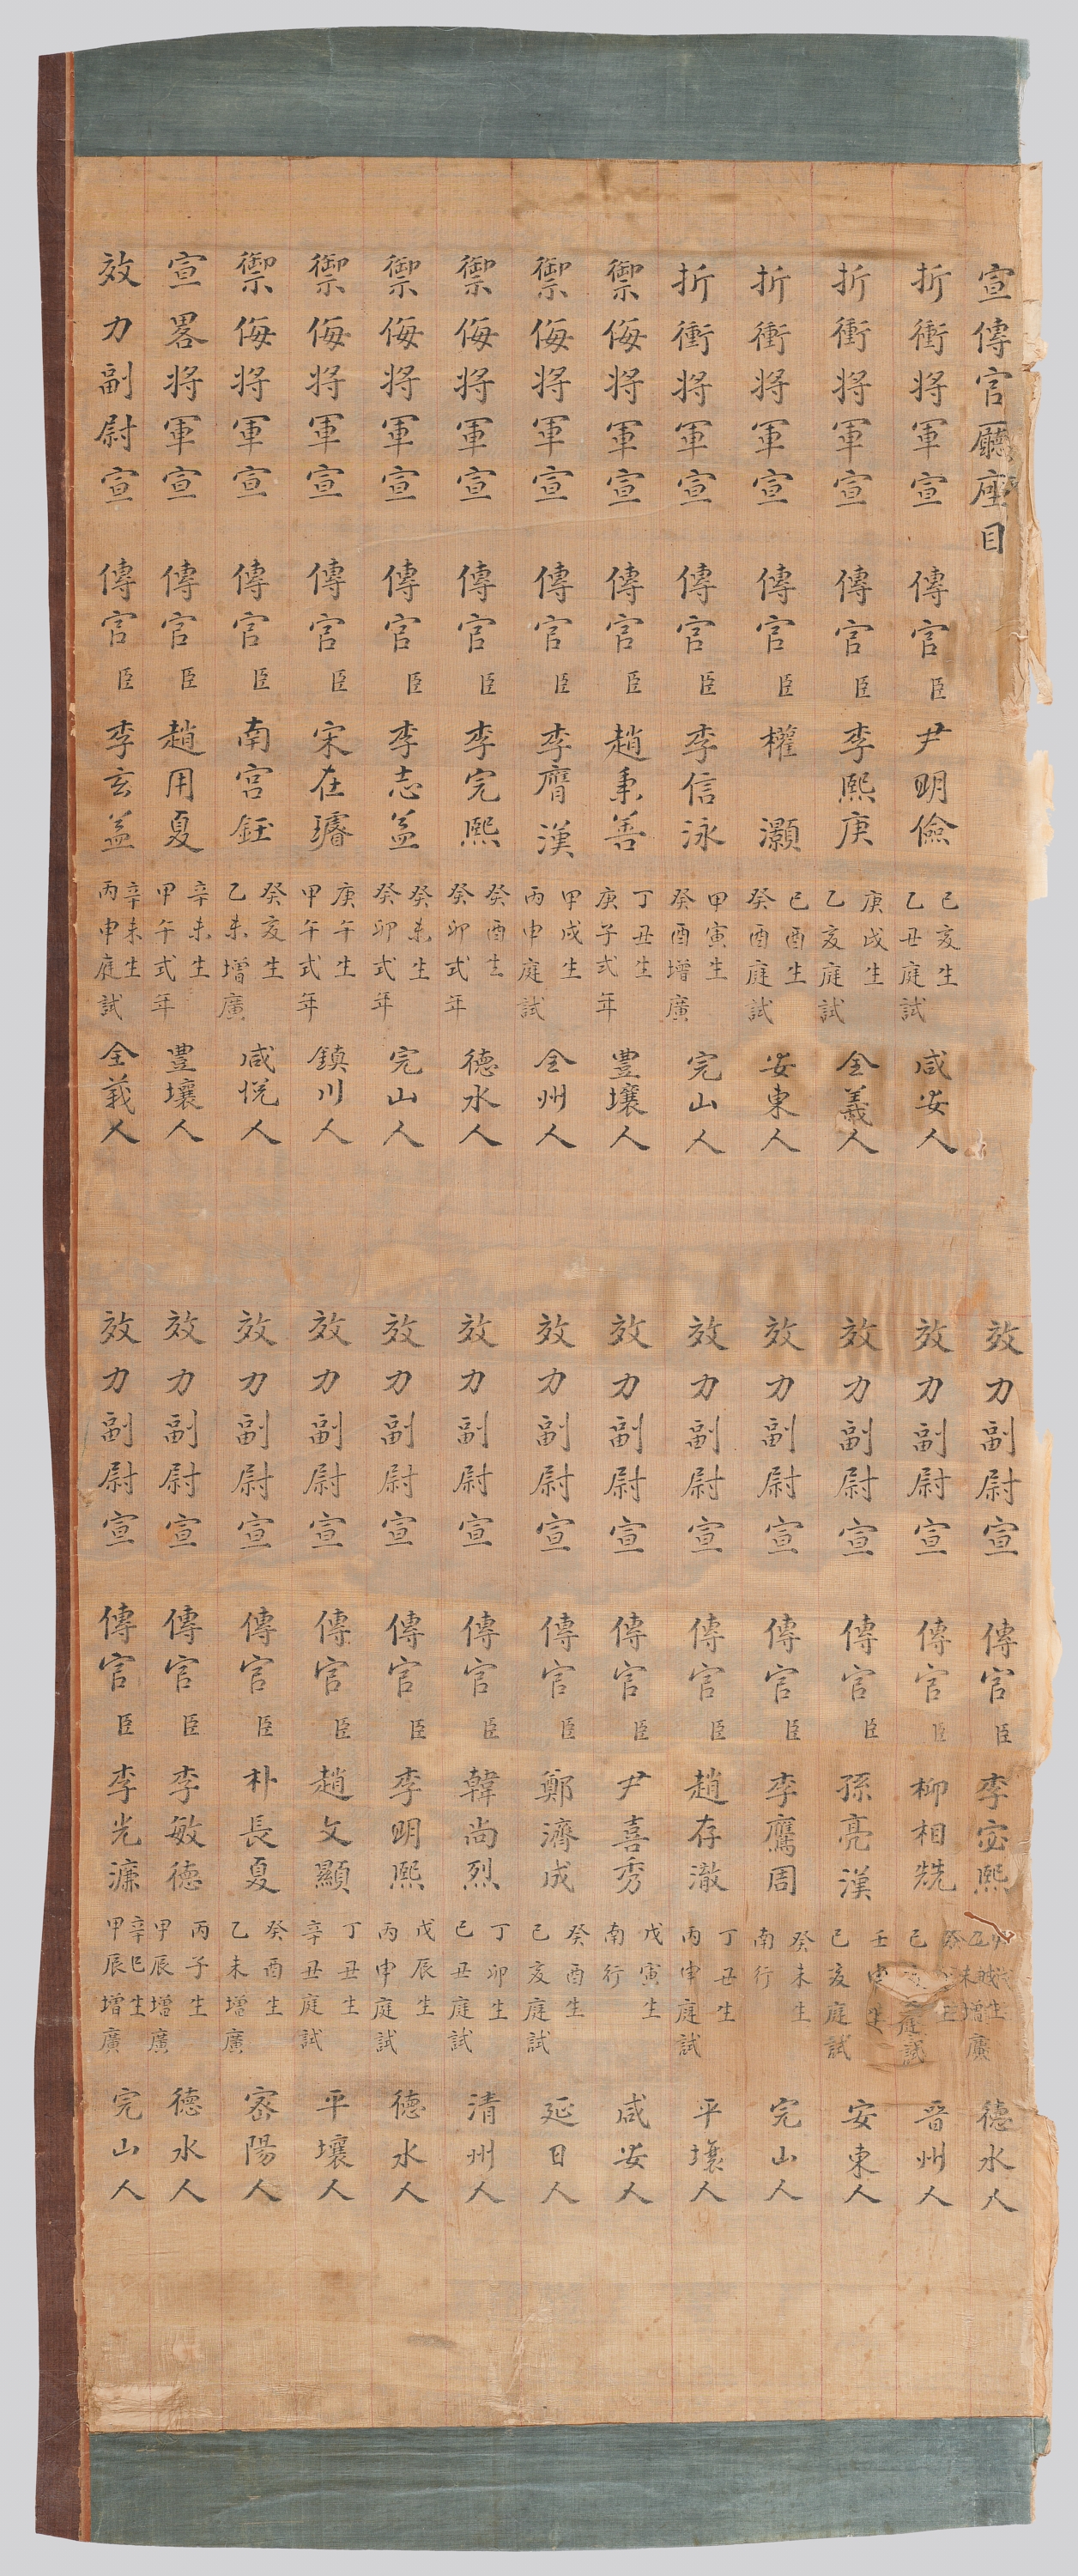 宣傳官廳座目
折衝將軍宣傳官臣尹明儉己亥生乙丑庭試咸安人
折衝將軍宣傳官臣李熙庚庚戌生乙亥庭試全義人
折衝將軍宣傳官臣權灝己酉生癸酉庭試安東人
折衝將軍宣傳官臣李信泳甲寅生癸酉增廣完山人
禦侮將軍宣傳官臣趙秉善丁丑生庚子式年豊壤人
禦侮將軍宣傳官臣李膺漢甲戌生丙申庭試全州人
禦侮將軍宣傳官臣李完熙癸酉生癸卯式年德水人
禦侮將軍宣傳官臣李志益癸未生癸卯式年完山人
禦侮將軍宣傳官臣宋在璿庚午生甲午式年鎮川人
禦侮將軍宣傳官臣南宮鈺癸亥生乙未增廣咸悅人
宣畧將軍宣傳官臣趙用夏辛未生甲午式年豊壤人
效力副尉宣傳官臣李玄益辛未生丙申庭試全義人
效力副尉宣傳官臣李宓熙生未增廣德水人
效力副尉宣傳官臣柳相兟己庭試晉州人
效力副尉宣傳官臣孫亮漢壬申生己亥庭試安東人
效力副尉宣傳官臣李鷹周癸未生南行完山人
效力副尉宣傳官臣趙存澈丁丑生丙申庭試平壤人
效力副尉宣傳官臣尹喜秀戊寅生南行咸安人
效力副尉宣傳官臣鄭濟成癸酉生己亥庭試延日人
效力副尉宣傳官臣韓尚烈丁卯生己丑庭試清州人
效力副尉宣傳官臣李明熙戊辰生丙申庭試德水人
效力副尉宣傳官臣趙文顯丁丑生辛丑庭試平壤人
效力副尉宣傳官臣朴長夏癸酉生乙未增廣密陽人
效力副尉宣傳官臣李敏德丙子生甲辰增廣德水人
效力副尉宣傳官臣李光濂辛巳生甲辰增廣完山人